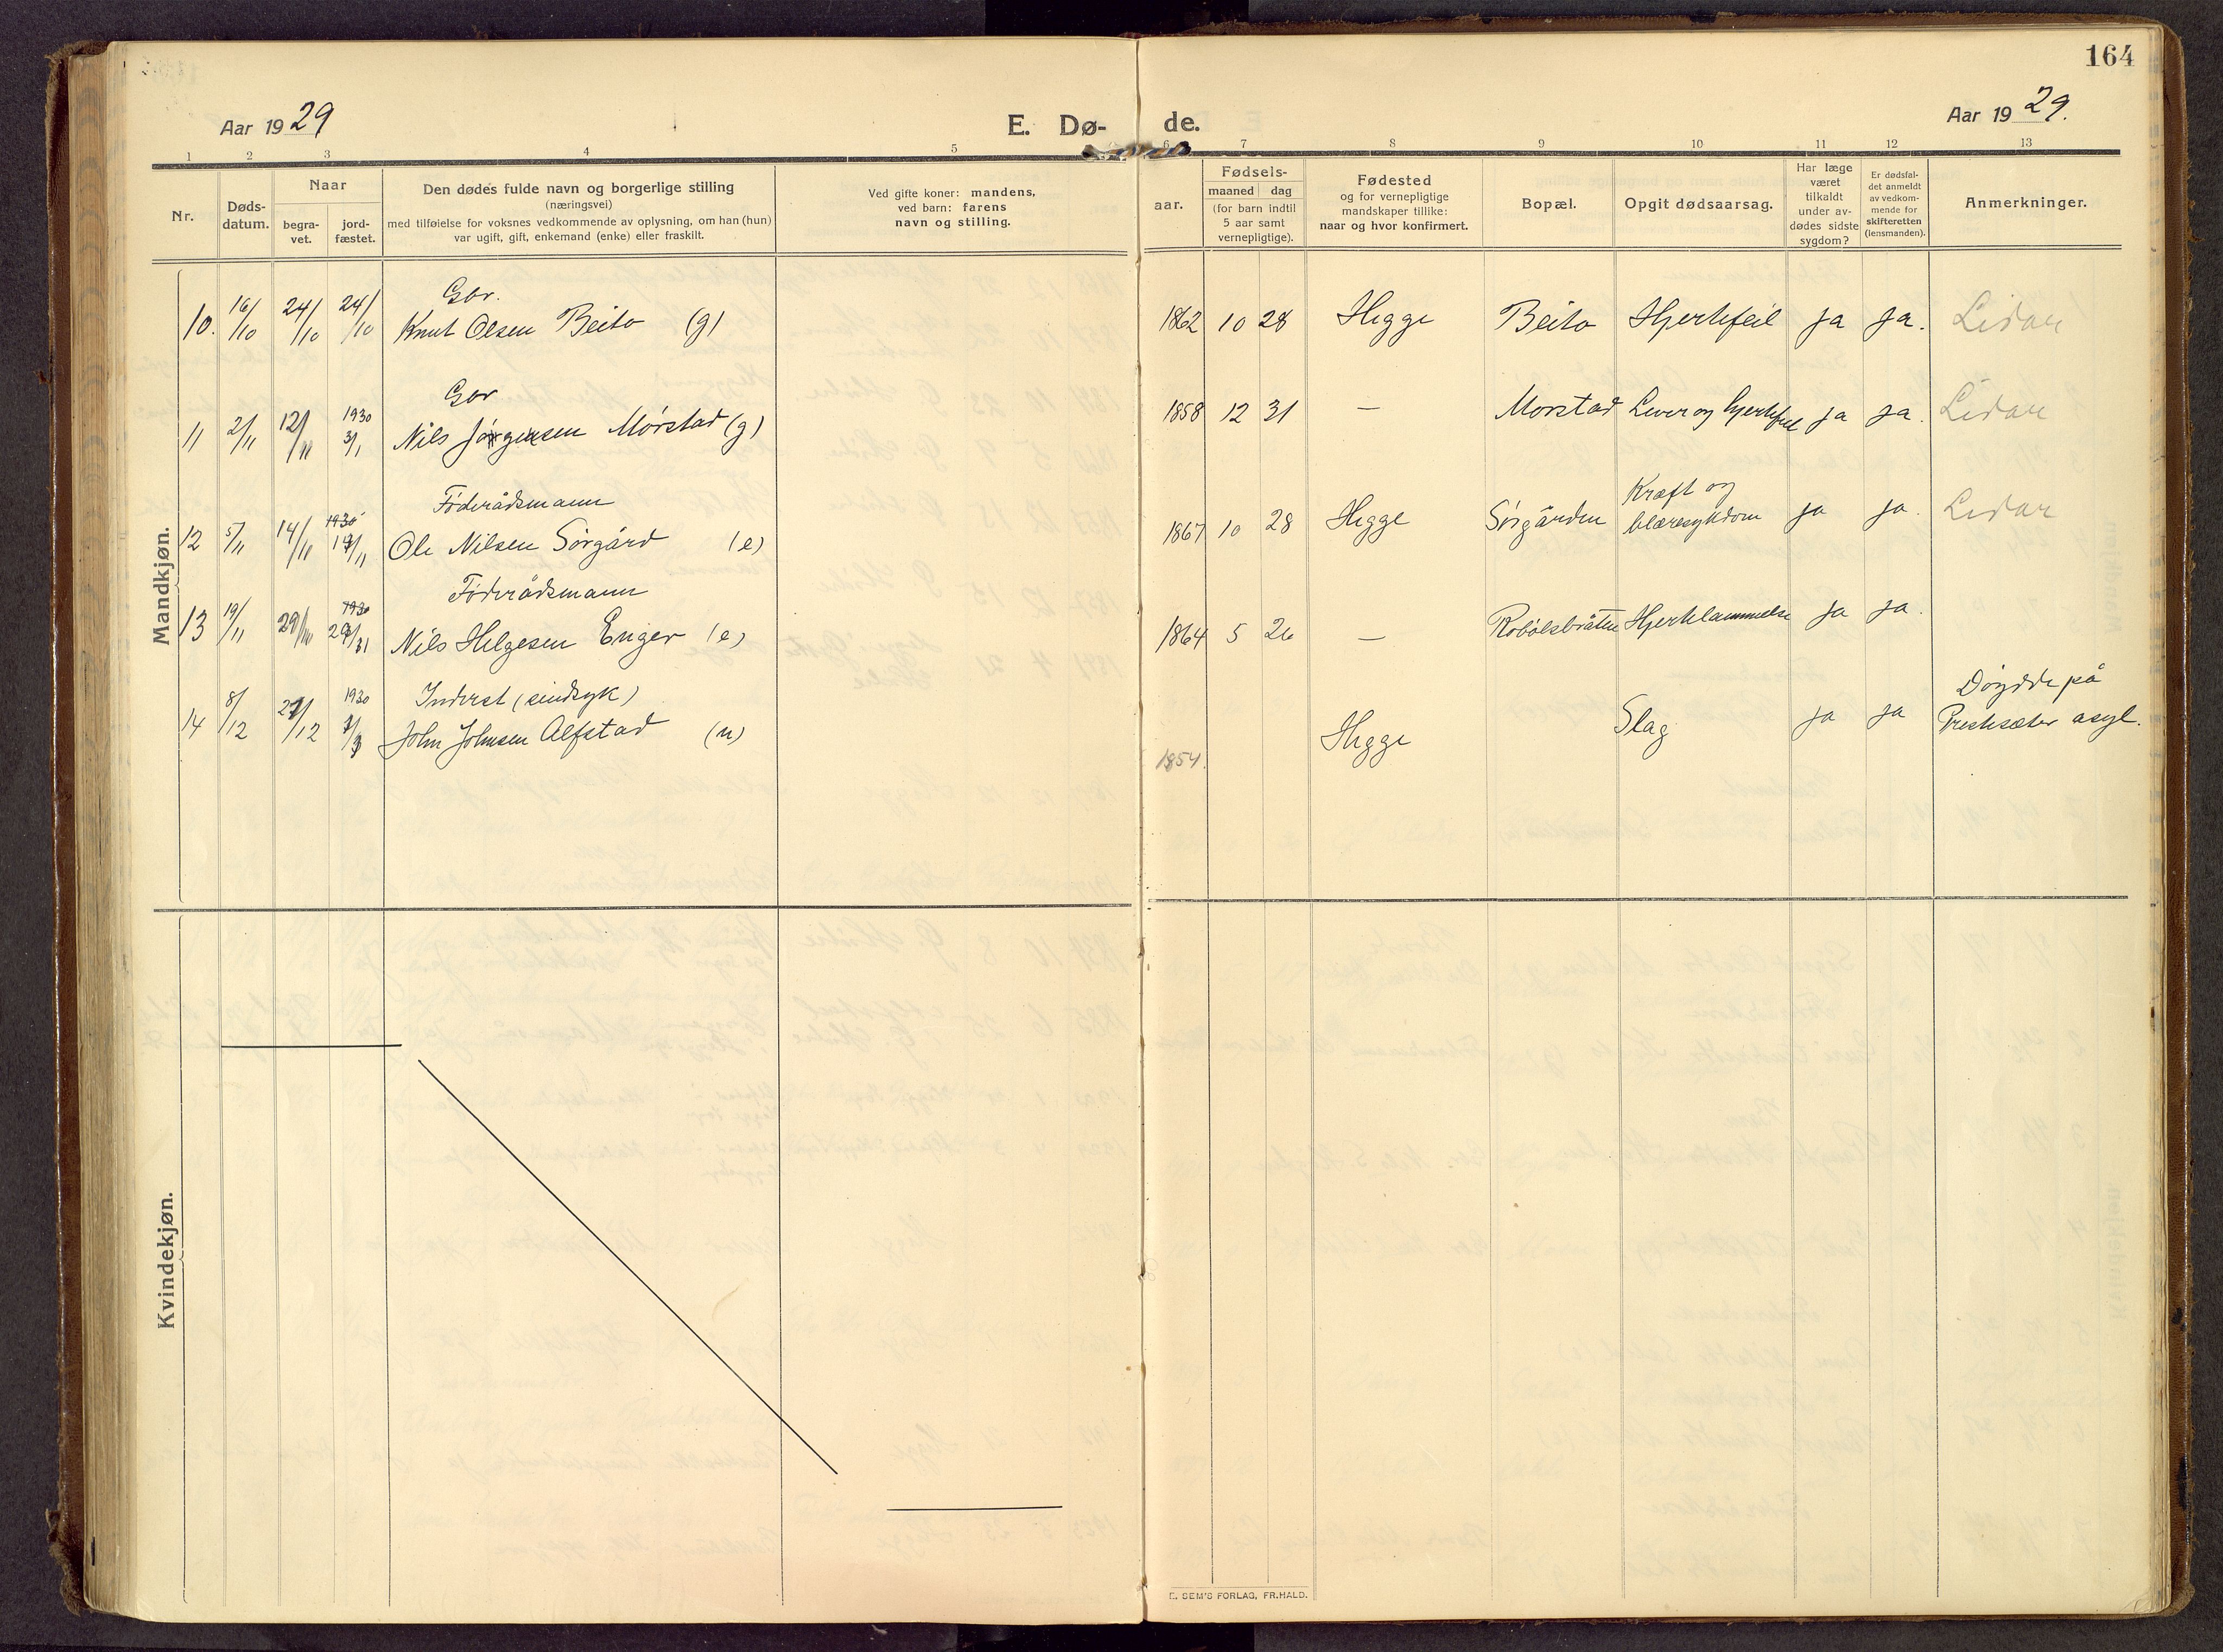 164
Aar 1929
E. Dø-
de.
Aar 1929.
1 2 3 4 5 6 7 8 9 10 11 12 13
Nr.
Døds-
datum.
Naar
begra-
vet.
jord-
fæstet.
Den dødes fulde navn og borgerlige stilling
(næringsvei)
med tilføielse for voksnes vedkommende av oplysning, om han (hun)
var ugift, gift, enkemand (enke) eller fraskilt.
Ved gifte koner: mandens,
ved barn: farens
navn og stilling.
aar.
Fødsels-
maaned dag
(for barn indtil
5 aar samt
vernepligtige).
Fødested
og for vernepligtige
mandskaper tillike:
naar og hvor konfirmert.
Bopæl.
Opgit dødsaarsag.
Har læge
været
tilkaldt
under av-
dødes sidste
sygdom?
Er dødsfal-
det anmeldt
av vedkom-
mende for
skifteretten
(lensmanden).
Anmerkninger.
Mandkjøn.
Gbr.
10. 16/10 24/10 24/10 Knut Olsen Beito (g) 1862 10 28 Hegge Beito Hjertefeil ja ja. Lidar
Gbr
1930
11 2/11 12/11 3/1 Nils Jørgensen Mørstad (g) 1858 12 31 — Morstad Lever og hjertefeil ja ja. Lidar
Føderådsmann
1930
12 5/11 14/11 14/11 Ole Nilsen Sørgård (e) 1867 10 28 Hegge Sørgården Kræft og
blæresykdom ja ja. Lidar
Føderådsmann
1930
13 19/11 29/11 Nils Helgesen Enger (e) 1864 5 26 — Robølsbråten Hjertelammelse ja ja.
Inderst (sindsyk)
1930
14 8/12 27/12 John Johnsen Alfstad (u) 1854. Hegge Slag ja ja Døydde på
Prestsæter asyl.
Kvindekjøn.
E. SEM'S FORLAG, FR.HALD.